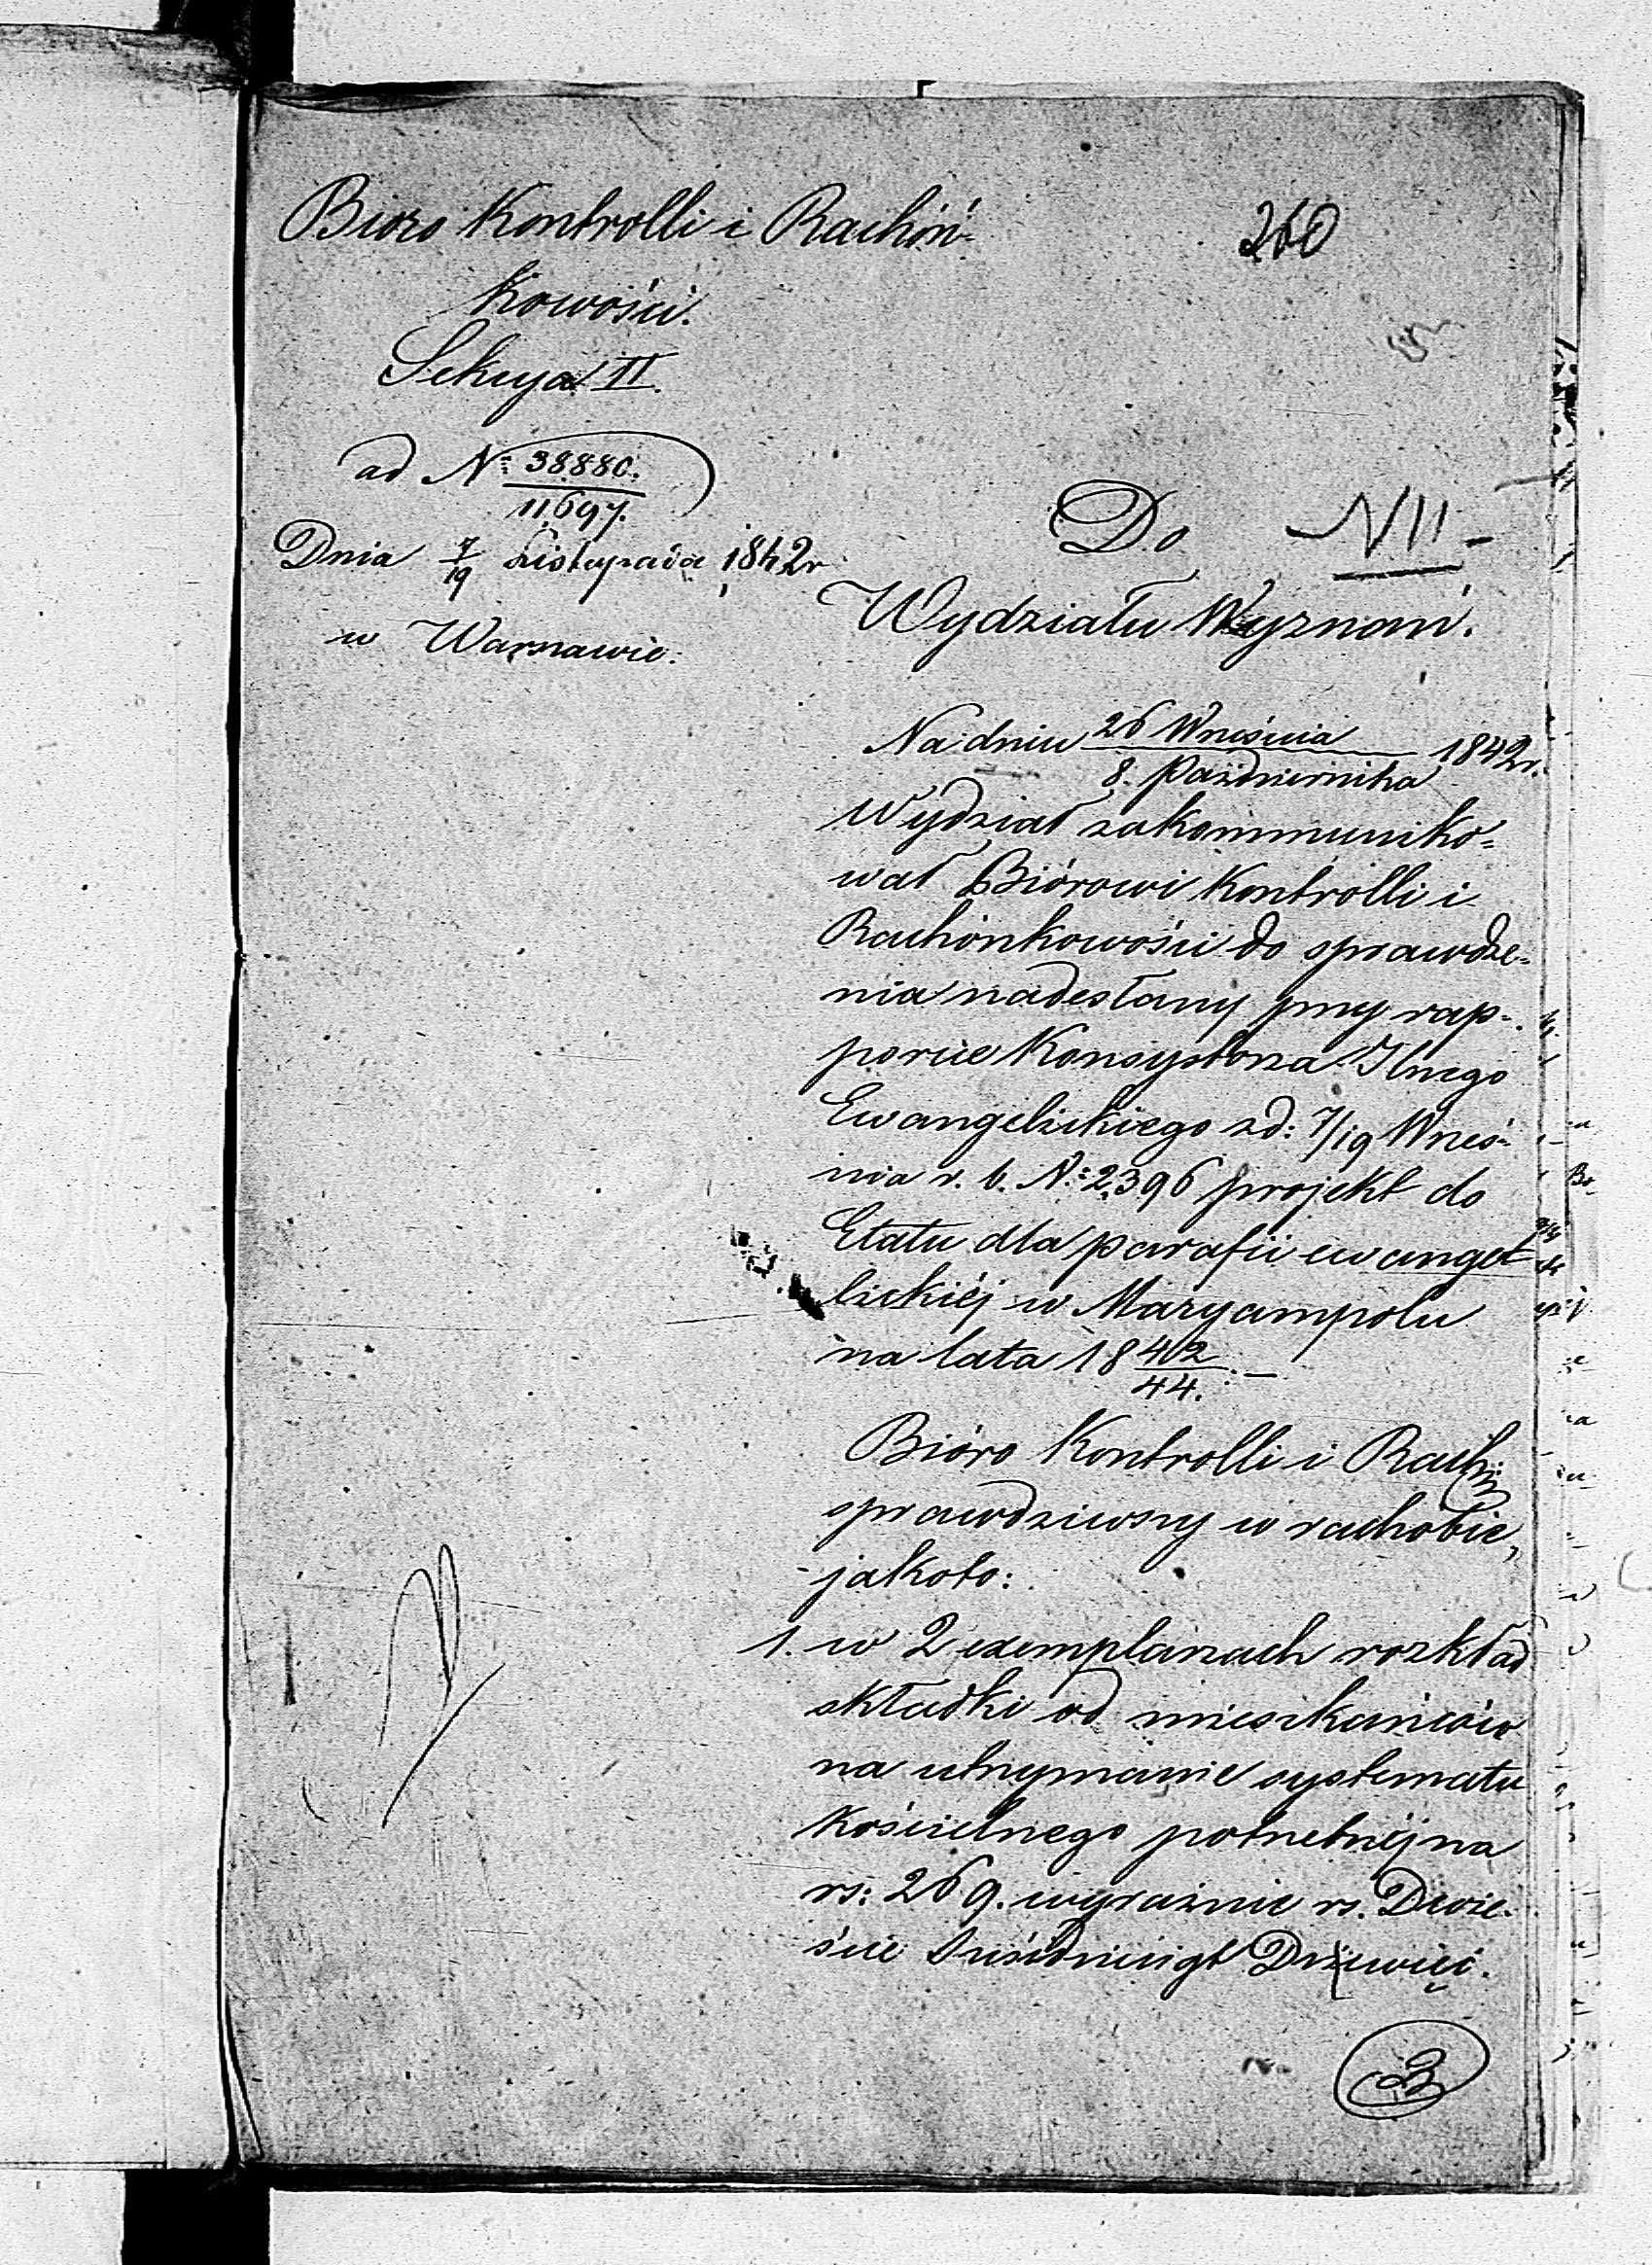 Bioro Kontrolli i Rachón-
kowości.
Sekcya II.
ad N: 38880.
11697.
Dnia 7/19 Listopada 1842r
w Warszawie.
260
Do NII
Wydziału Wyznań.
Na dniu 26 Września 1842r.
8. Października
Wydział zakommuniko=
wał Biórowi Kontrolli i
Rachónkowości do sprawdze=
nia nadesłany przy rap=
porcie Konsystorza Jlnego
Ewangelickiego zd: 7/19 Wrześ-
nia r. b. N: 2396 projekt do
Etatu dla parafii ewange-
lickiéj w Maryampolu
na lata 18 42/44. —
Bióro Kontrolli i Rach:
sprawdziwszy w rachobie,
jakoto:
1. w 2 exemplarzach rozkład
składki od mieszkańców
na utrzymanie systematu
Kościelnego potrzebnéj na
rs: 269. wyraźnie rs. Dwie-
ście sześćdziesiąt Dziewięć.